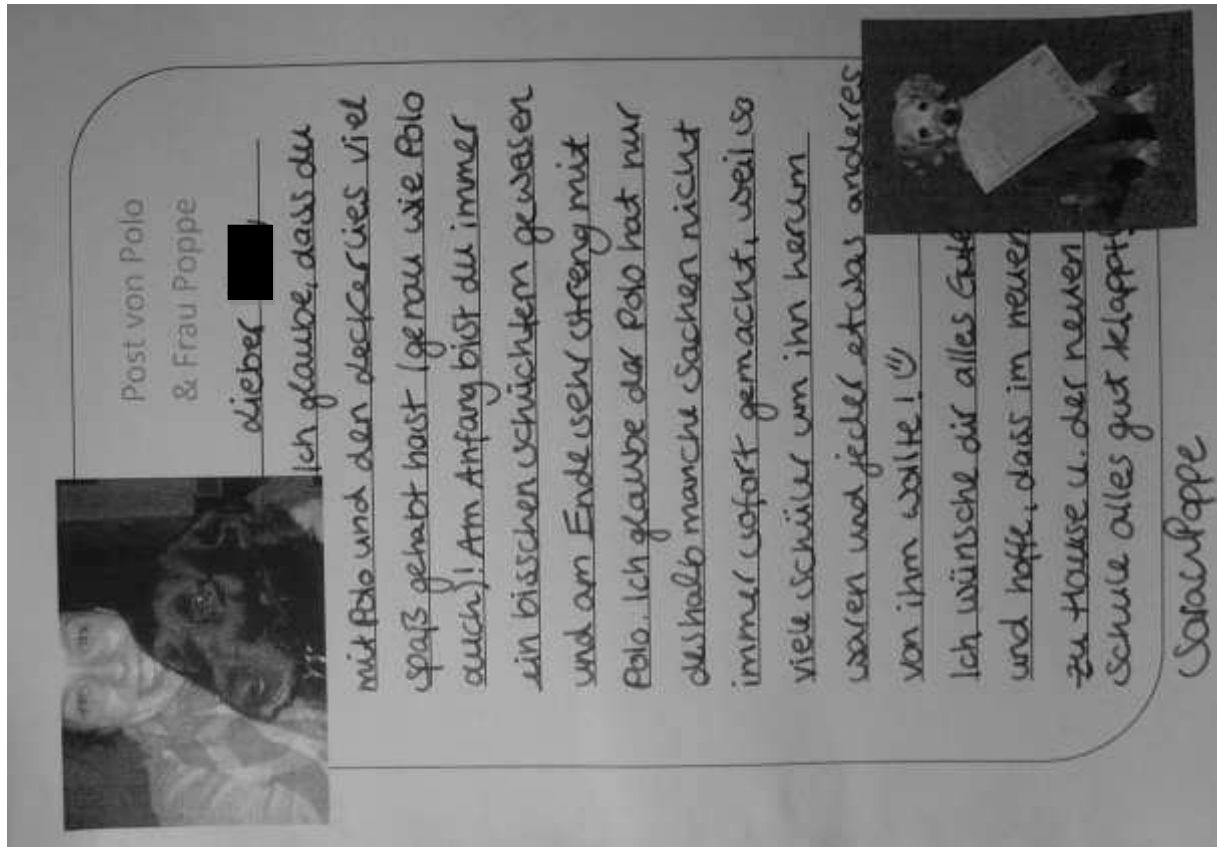 Post von Polo
& Frau Poppe
Lieber
Ich glaube, dass du
mit Polo und den deckerlies viel
Spaß gehabt hast (genau wie Polo
auch)! Am Anfang bist du immer
ein bisschen schüchtern gewesen
und am Ende sehr streng mit
Polo. Ich glaube der Polo hat nur
deshalb manche Sachen nicht
immer sofort gemacht, weil so
viele Schüler um ihn herum
waren und jeder etwas anderes
von ihm wollte! ☺
Ich wünsche dir alles Gute
und hoffe, dass im neuen
zu Hause u. der neuen
Schule alles gut klappt!
Sarah Poppe